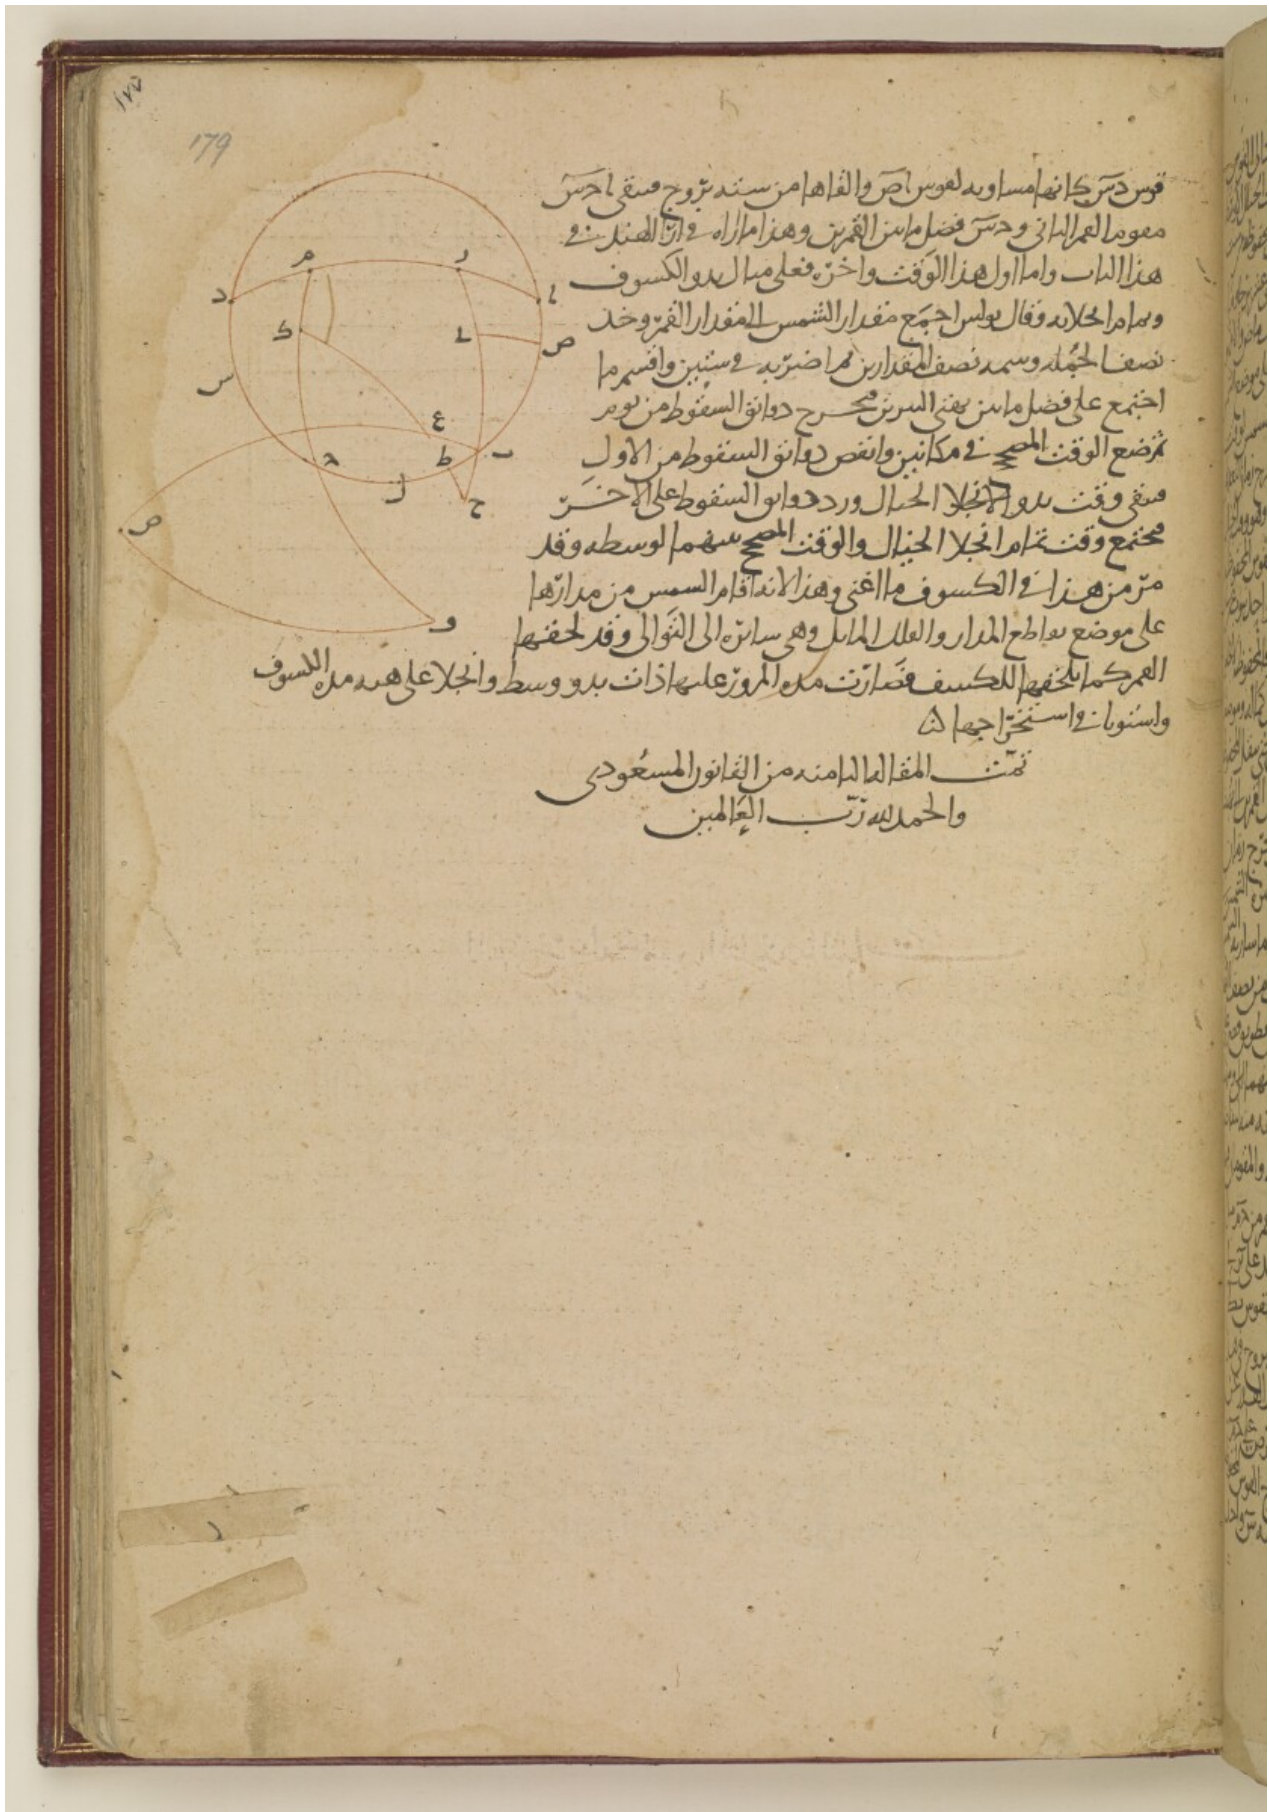 179
قوس دس كانها مساويه لقوس اص والقاها من ستة بروج فيبقى ادس
مقوما القمر الثاني ودس فضل ما بين القمرين وهذا ما اراه في اراء الهند في
هذا الباب واما اول هذا الوقت واخره فعلى مثال بدو الكسوف
وتمام انجلايه وقال بولس اجمع مقدار الشمس الى مقدار القمر وخذ
نصف الجمله وسمه نصف المقدارين ثم اضربه في ستين واقسم ما
اجتمع على فضل ما بين بهتى النيرين فيخرج دوانق السقوط من يوم
ثم ضع الوقت المصحح في مكانين وانقص دوانق السقوط من الاول
فيبقى وقت بدو انجلا الخيال وزد دوانق السقوط على الاخر
فيجتمع وقت تمام انجلا الخيال والوقت المصحح بينهما لوسطه وقد
مر من هذا في الكسوف ما اغنى وهذا لانه اقام الشمس من مدارها
على موضع تقاطع المدار والفلك المايل وهي سائره الى التوالي وقد لحقها
القمر كما يلحقها للكسف فصارت مده المرور عليها ذات بدو ووسط وانجلا على هيه مده الكسوف
واستويا في استخراجها
تمت المقاله الثامنه من القانون المسعودي
والحمد لله رب العالمين
د م ر ا
ك ل ص
س
ع
ه ط ب
ح
ص
و